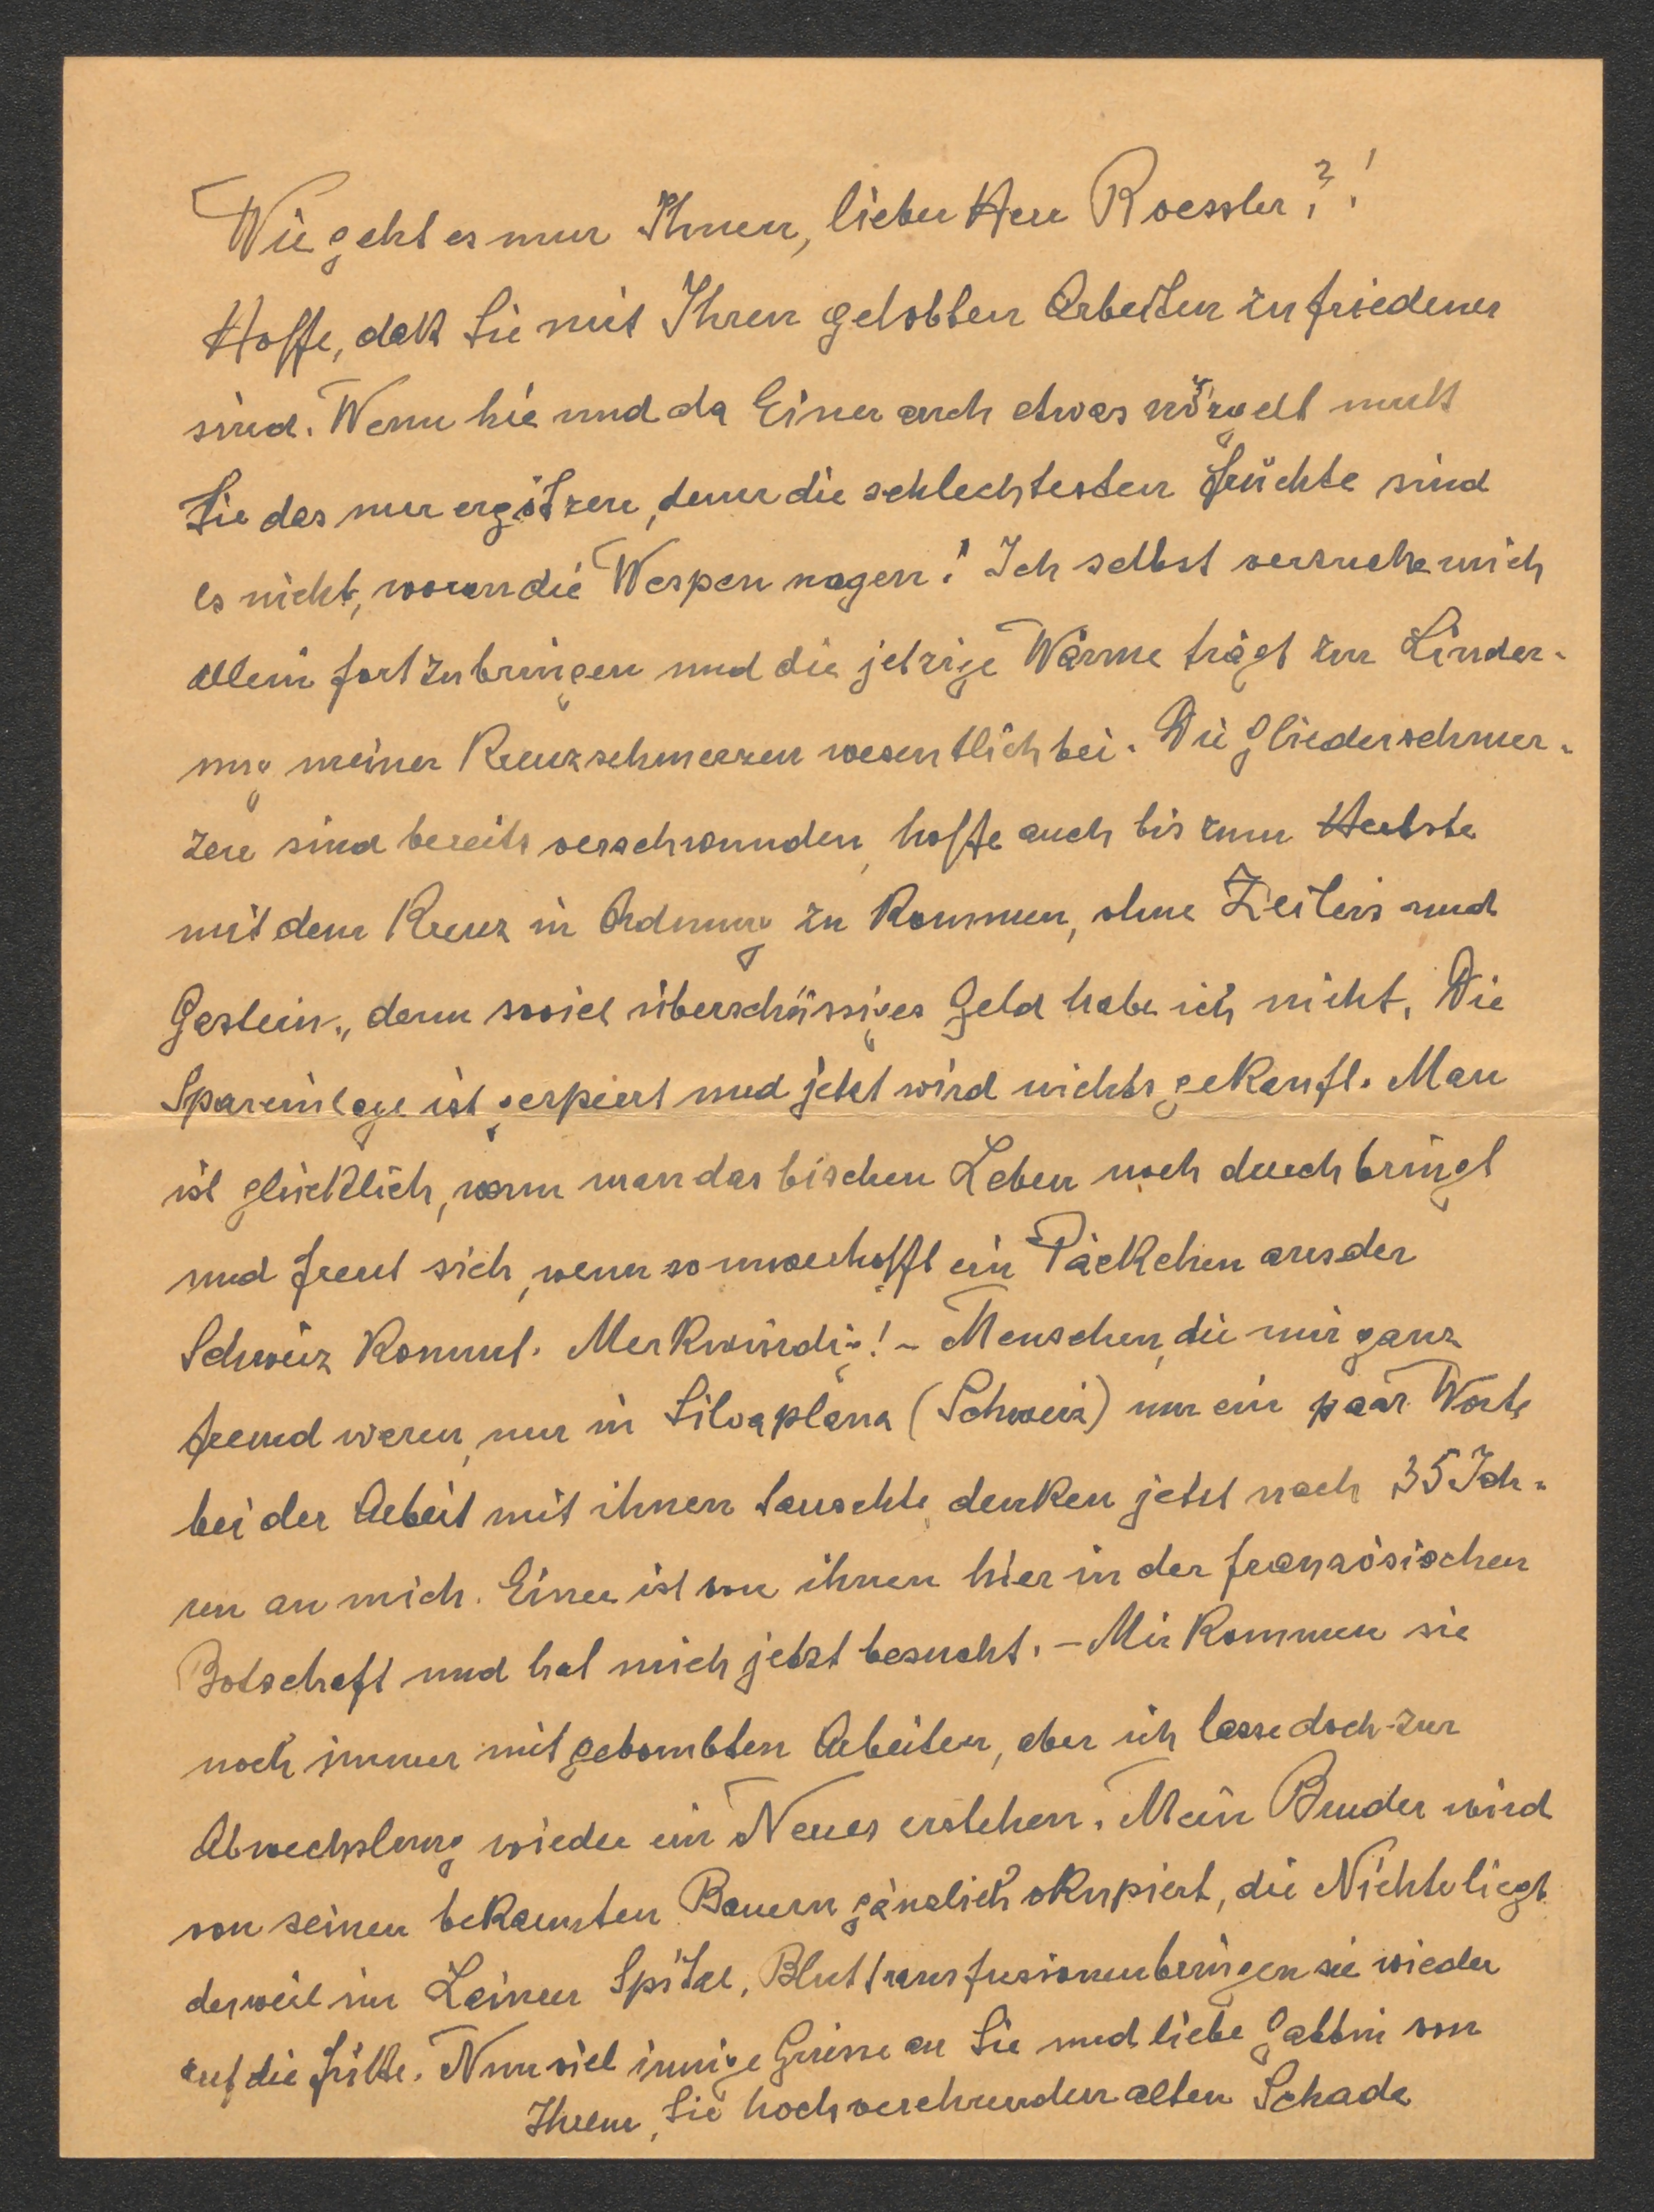 Wie geht es nur Ihnen, lieber Herr Roessler?!
Hoffe, daß Sie mit Ihren gelobten Arbeiten zufriedener
sind. Wenn hie und da Einer auch etwas nörgelt muß
Sie das nur ergötzen, denn die schlechtesten Früchte sind
es nicht, woran die Wespen nagen! Ich selbst versuche mich
allein fortzubringen und die jetzige Wärme trägt zur Linder-
ung meiner Kreuzschmerzen wesentlich bei. Die Gliederschmer-
zen sind bereits verschwunden, hoffe auch bis zum Herbste
mit dem Kreuz in Ordnung zu kommen, ohne Zeileis und
Gastein, denn soviel überschüssiges Geld habe ich nicht. Die
Spareinlage ist gesperrt und jetzt wird nichts gekauft. Man
ist glücklich, wenn man das bischen Leben noch durchbringt
und freut sich, wenn so unverhofft ein Päckchen aus der
Schweiz kommt. Merkwürdig! – Menschen, die mir ganz
fremd waren, nur in Silvaplana (Schweiz) nur ein paar Worte
bei der Arbeit mit ihnen tauschte, denken jetzt nach 35 Jah-
ren an mich. Einer ist von ihnen hier in der französischen
Botschaft und hat mich jetzt besucht. – Mir kommen sie
noch immer mit gebombten Arbeiten, aber ich lasse doch zur
Abwechslung wieder ein Neues erstehen. Mein Bruder wird
von seinen bekannten Bauern gänzlich okupiert, die Nichte liegt
derweil im Lainzer Spital, Bluttransfusionen bringen sie wieder
auf die Füße. Nun viel innige Grüsse an Sie und liebe Gattin von
Ihrem, Sie hochverehrenden alten Schada